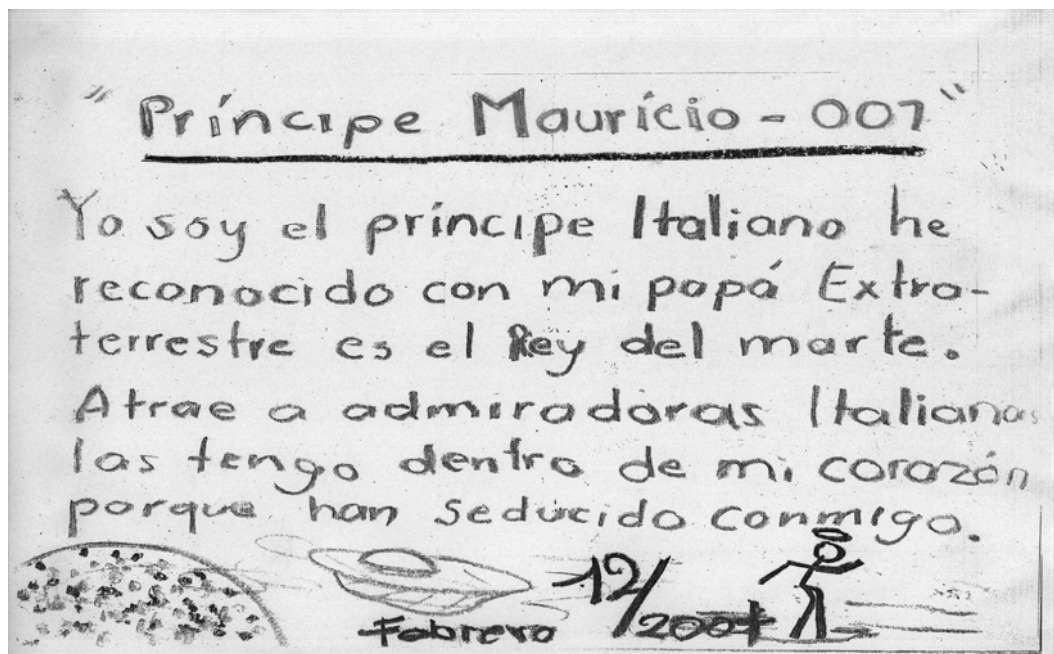 "Príncipe Maurício - 007"
Yo soy el príncipe Italiano he
reconocido con mi papá Extra-
terrestre es el Rey del marte.
Atrae a admiradoras Italianas
las tengo dentro de mi corazón
porque han seducido conmigo.
Febrero 12/2007